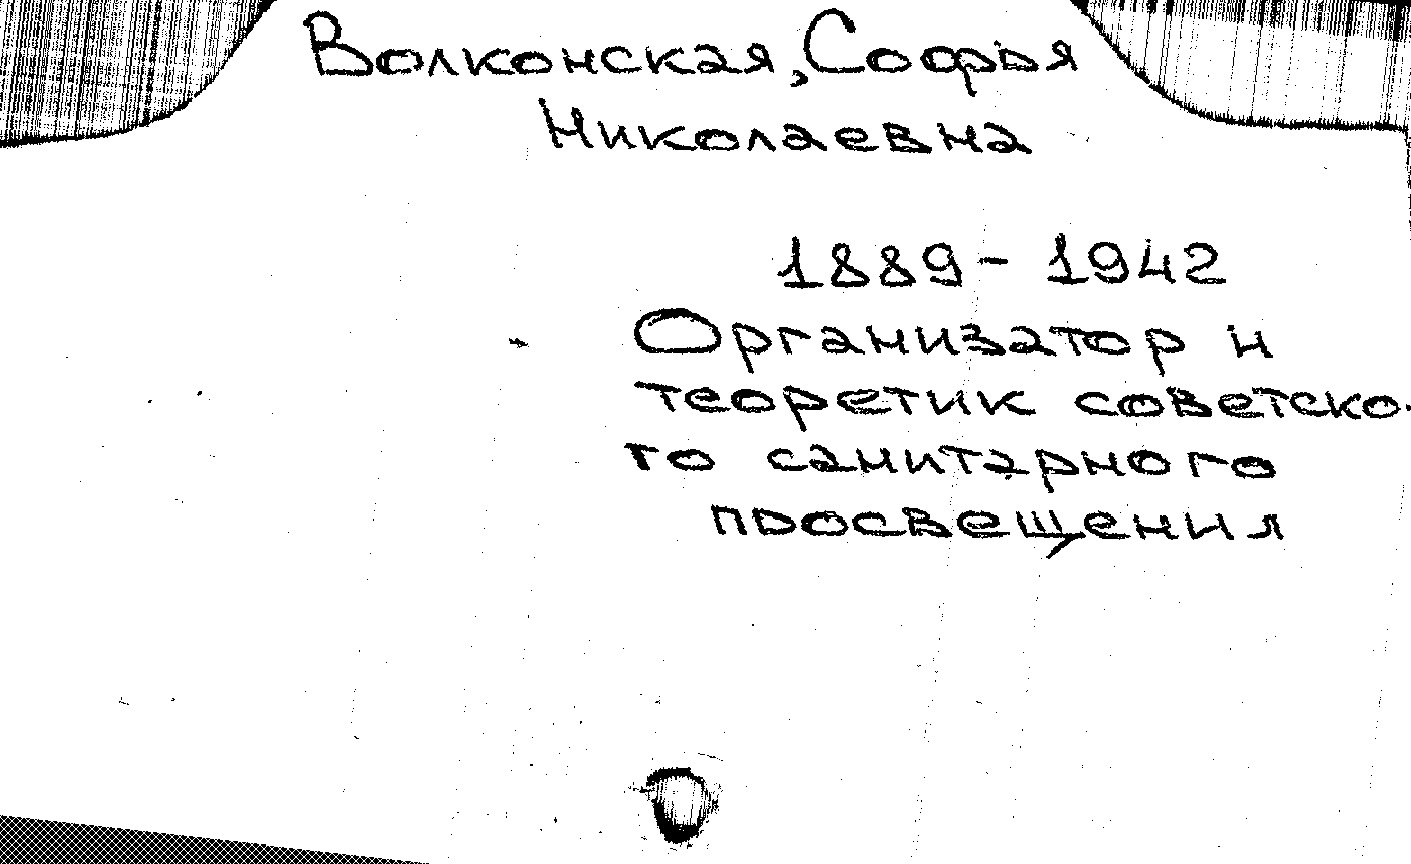 Волконская, Софья
Николаевна
1889 - 1942
Организатор и
теоретик советско-
го санитарного
просвещения